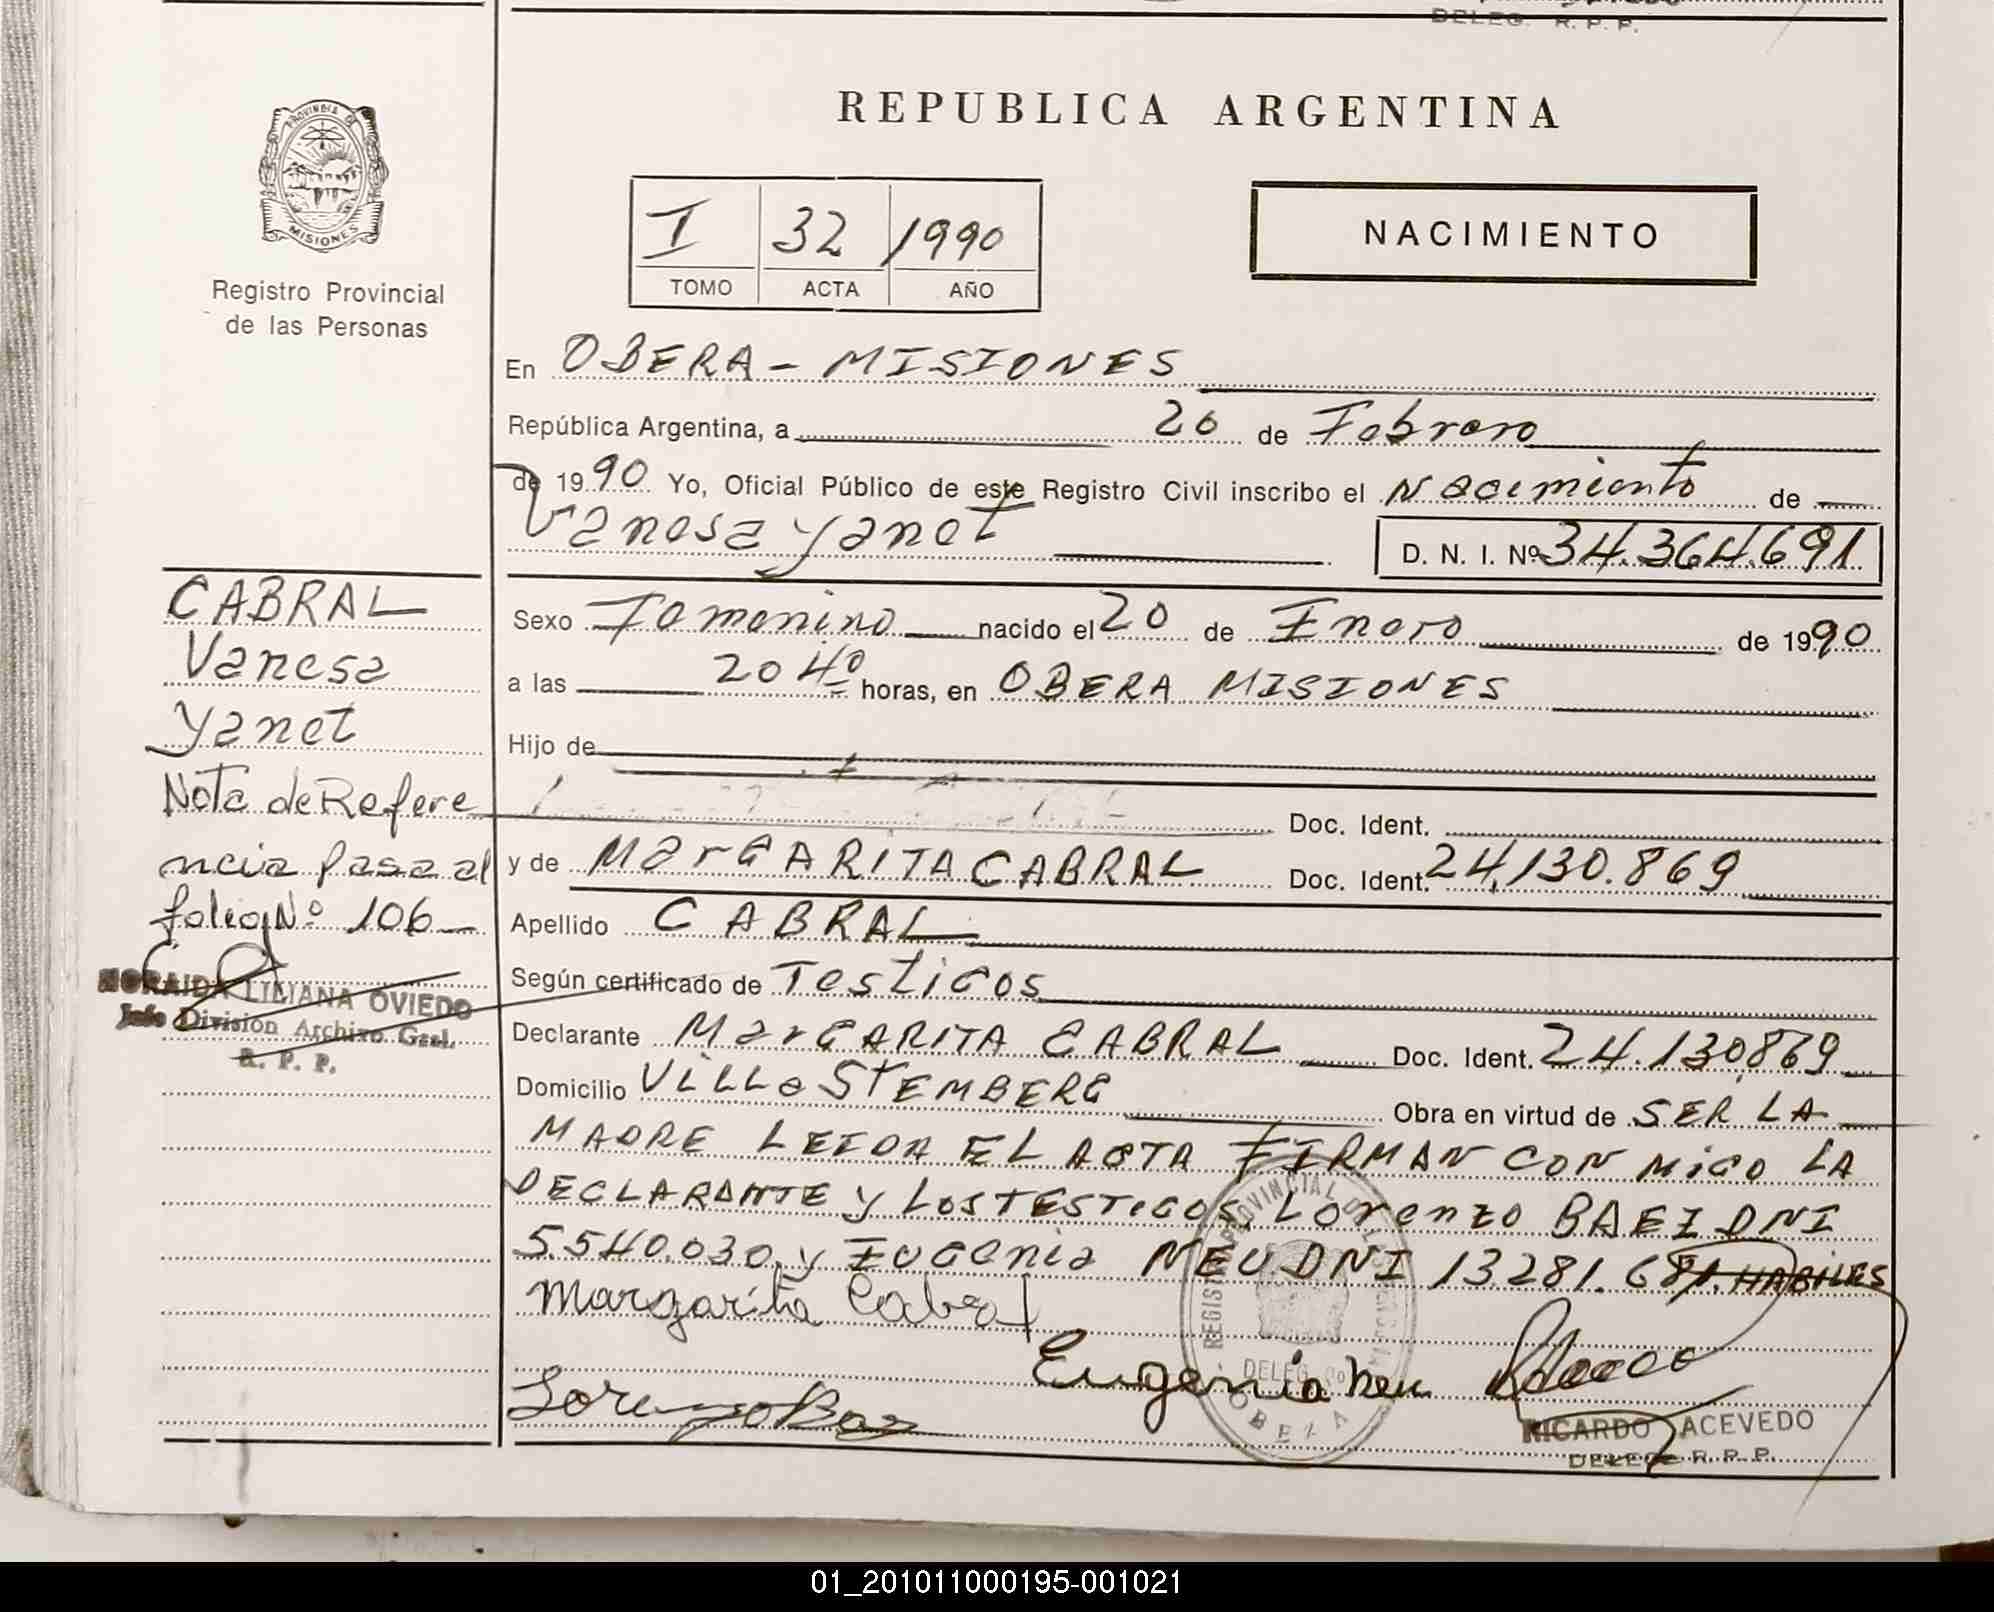 DELEG. R. P. P.
PROVINCIA DE
MISIONES
Registro Provincial
de las Personas
REPUBLICA ARGENTINA
I 32 1990
TOMO ACTA AÑO
NACIMIENTO
En OBERA - MISIONES
República Argentina, a 26 de Febrero
de 1990 Yo, Oficial Público de este Registro Civil inscribo el Nacimiento de
Vanesa Yanet D. N. I. Nº 34.364.691
Sexo Femenino nacido el 20 de Enero de 1990
a las 20 40 horas, en OBERA MISIONES
Hijo de
Doc. Ident.
y de MarGARITA CABRAL Doc. Ident. 24.130.869
Apellido CABRAL
Según certificado de TesTiGos
Declarante MarGARITA CABRAL Doc. Ident. 24.130.869
Domicilio ViLLa STEMBERG Obra en virtud de SER LA
MADRE LEIDA EL ACTA FIRMAN CON MiGO LA
DECLARANTE y LOS TESTIGOS, Lorenzo BAEZ DNI
5.540.030 y EUGenia NEU DNI 13281.681. HABILES
Margarita Cabral
Eugenia Neu
Lorenzo Baez
RICARDO ACEVEDO
DELEG. R. P. P.
CABRAL
Vanesa
Yanet
Nota de Refere
ncia pasa al
folio Nº 106
NORAIDA LILIANA OVIEDO
Jefe División Archivo Gral.
R. P. P.
01_201011000195-001021